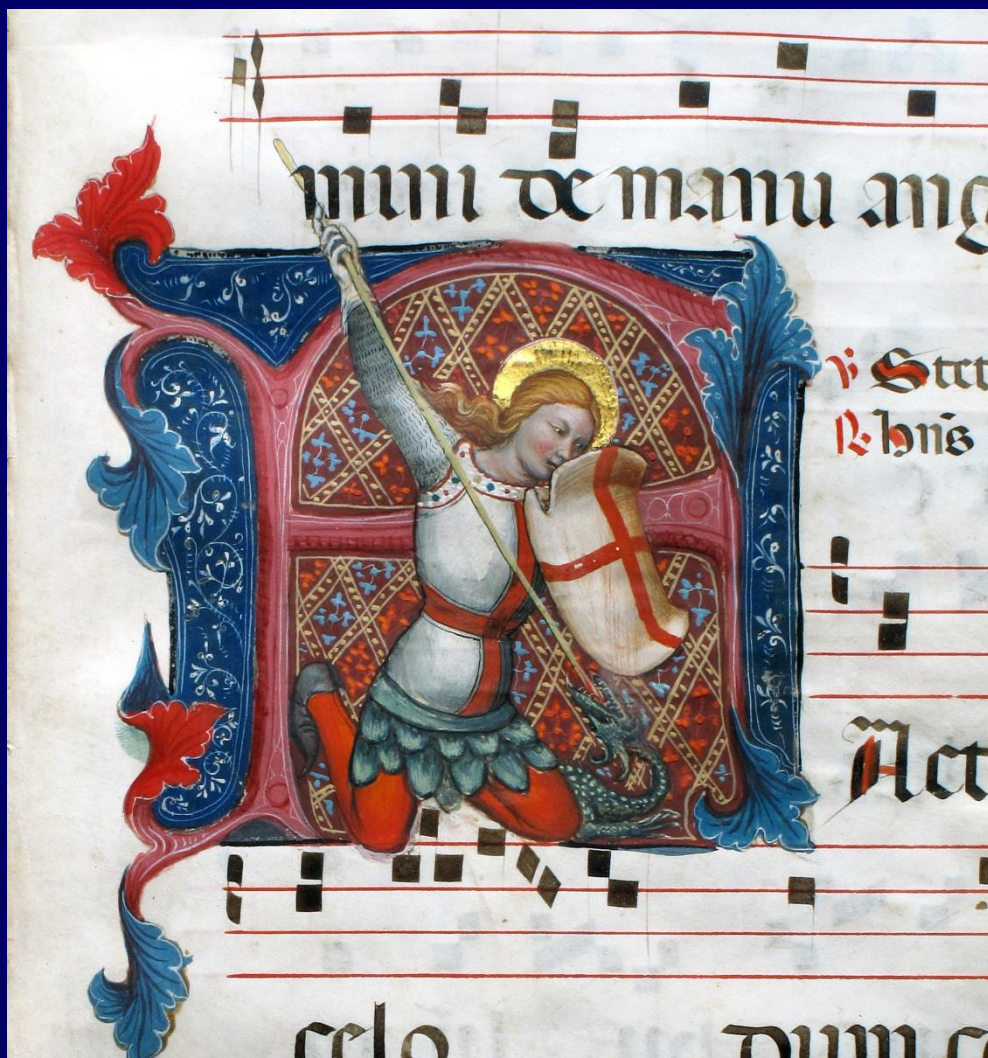 mini de manu ang
℣ Stet
℟ hūs
Act
celo dum co